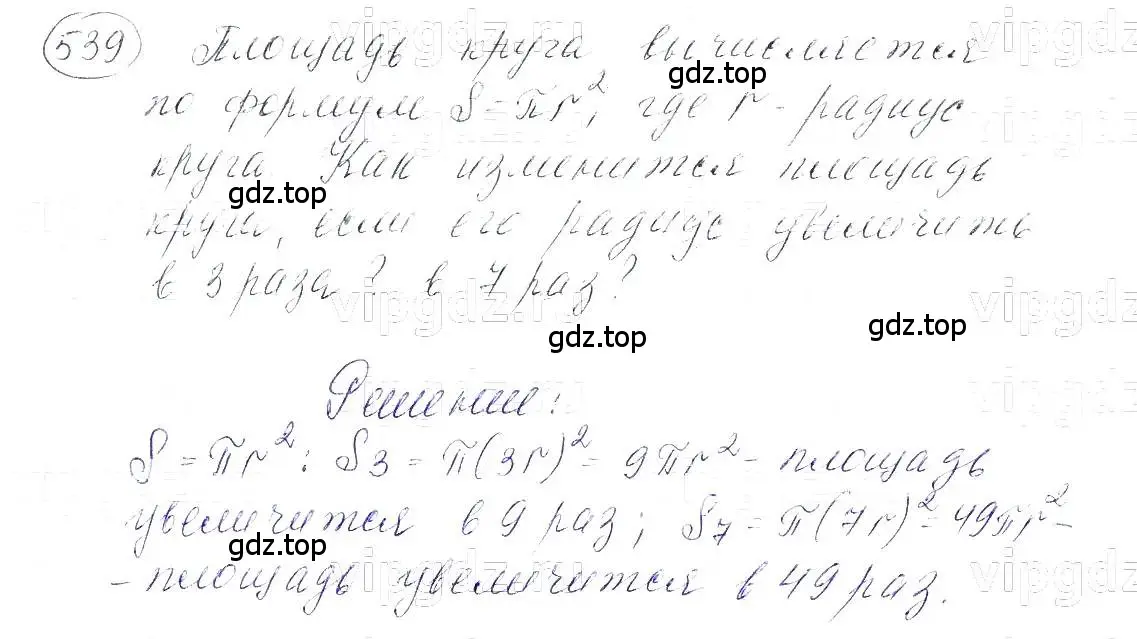 539 Площадь круга вычисляется
по формул S = πr², где r - радиус
круга. Как изменится площадь
круга, если его радиус увеличить
в 3 раза? в 7 раз?
Решение:
S = πr²: S3 = π(3r)² = 9πr² - площадь
увеличится в 9 раз; S7 = π(7r)² = 49πr² -
- площадь увеличится в 49 раз.
gdz.top
gdz.top
gdz.top
gdz.top
gdz.top